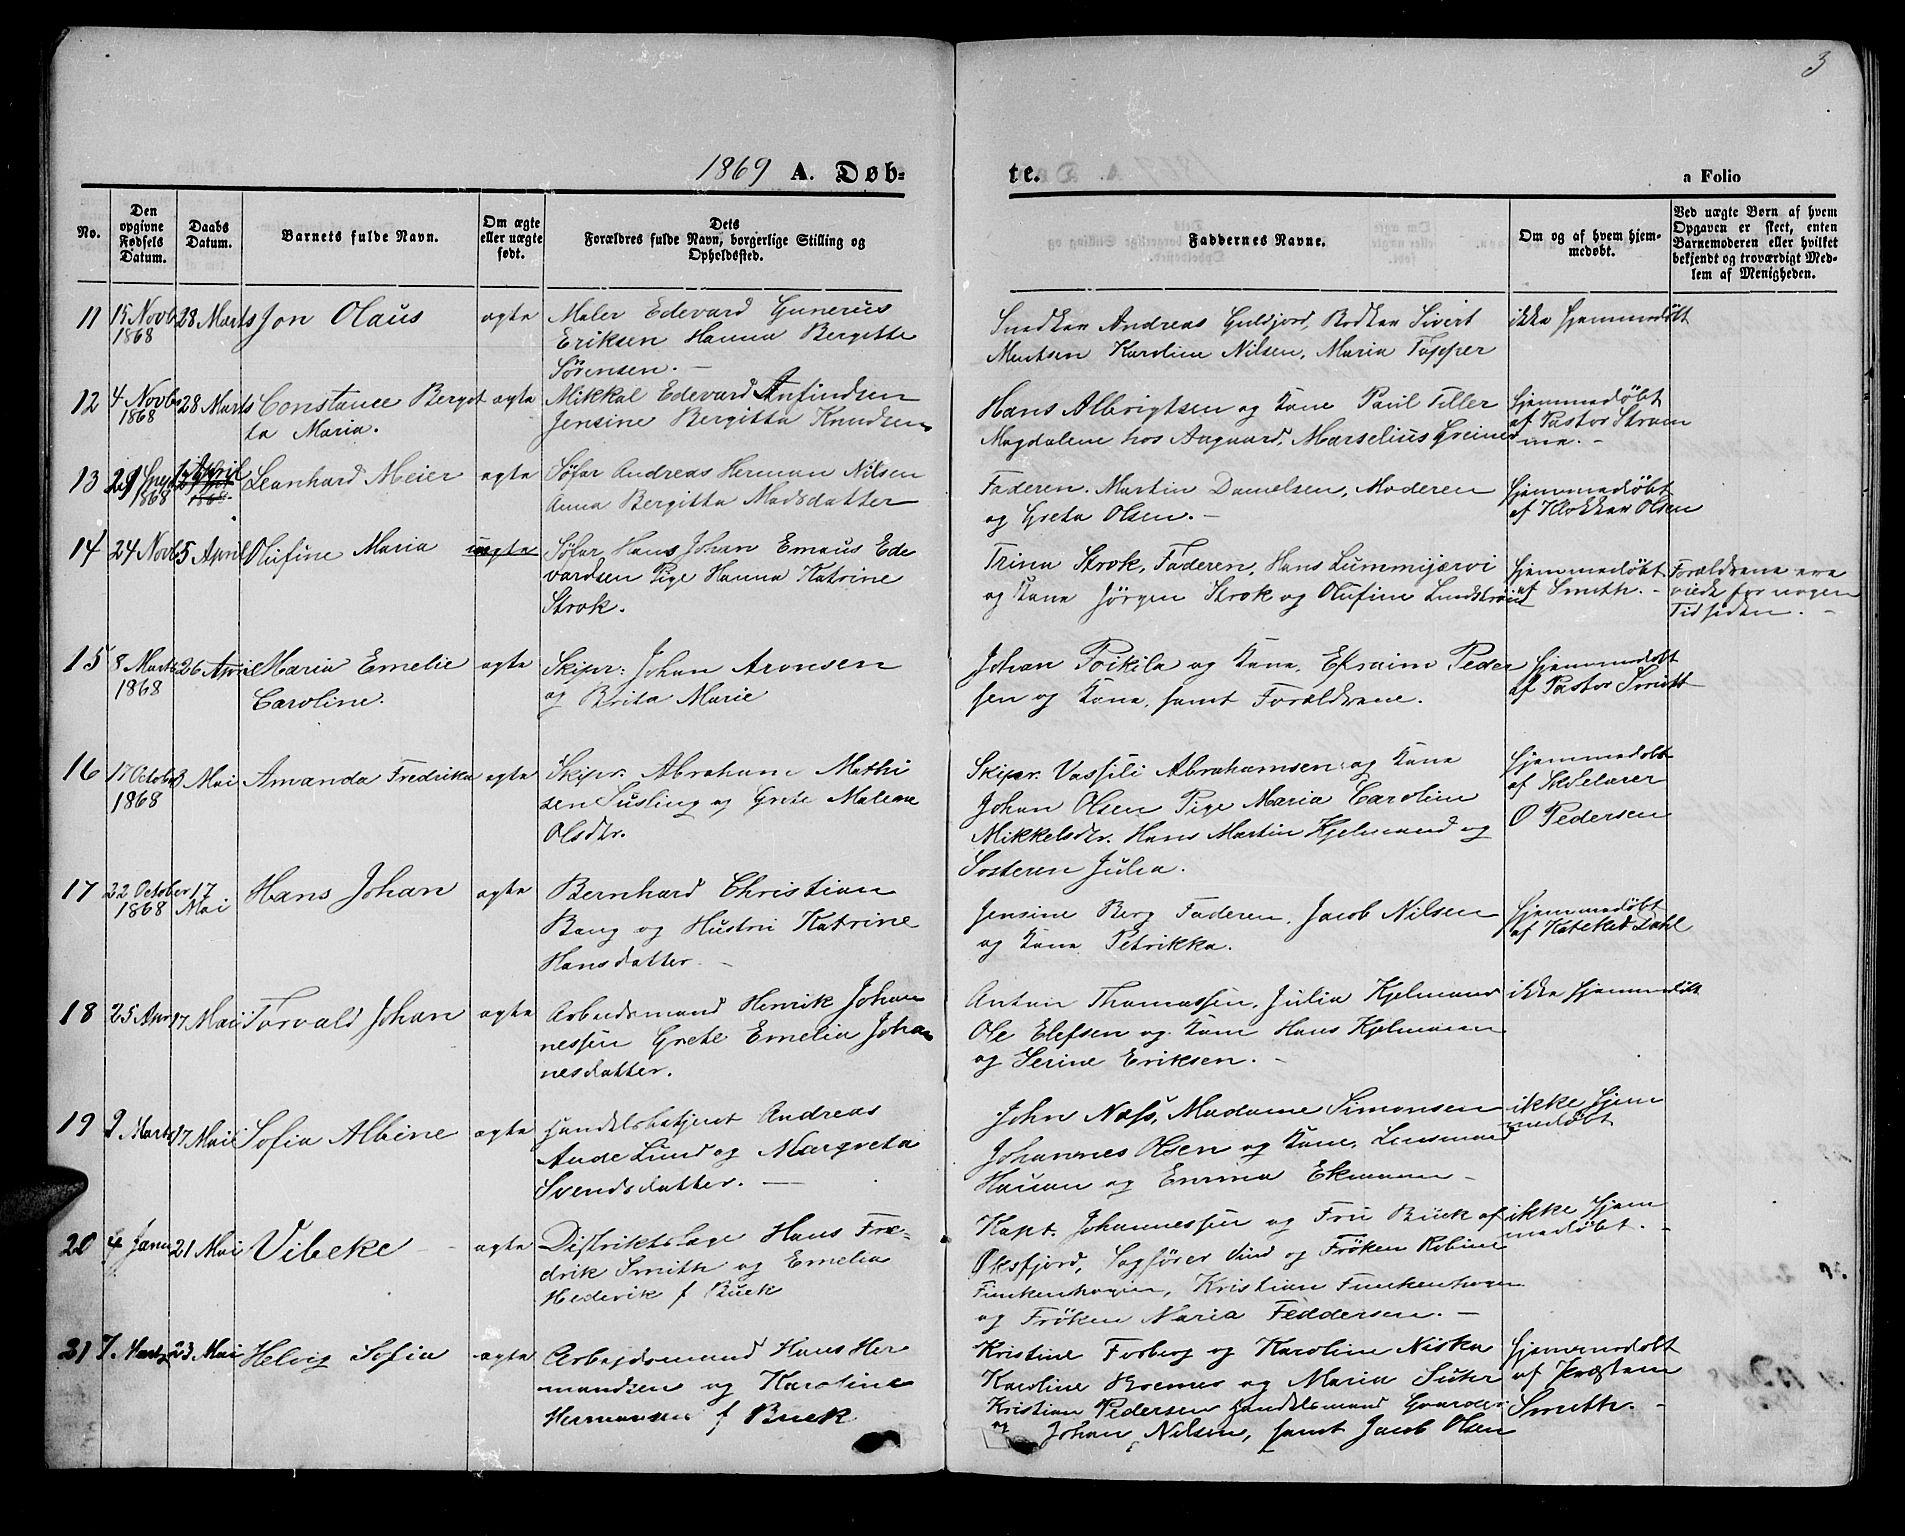 3
1869 A. Døb-
te.
a Folio
No.
Den opgivne Fødsels Datum.
Daabs Datum.
Barnets fulde Navn.
Om ægte eller uægte født.
Dets Forældres fulde Navn, borgerlige Stilling og Opholdssted.
Faddernes Navne.
Om og af hvem hjemmedøbt.
Ved uægte Børn af hvem Opgaven er skeet, enten Barnemoderen eller hvilket bekjendt og troværdigt Medlem af Menigheden.
11 15 Novb 28 Marts Jon Olaus ægte Maler Edevard Gunerius
1868 Eriksen Hanna Bergitte
Sørensen.
Snedker Andreas Guldjord, Bødker Sivert ikke hjemmedøbt
Mentsen Karoline Nilsen, Maria Tapper
12 4 Novb 28 Marts Constance Bergit ægte Mikkal Edevard Anfindsen
1868 ta Maria. Jensine Bergitta Knudsen
Hans Albrigtsen og Kone Paul Tiller hjemmedøbt
Magdalene hos Aagaard, Marselius Greiner af Pastor Strøm
me.
13 29 April Leonhard Meier ægte Søfar Andreas Herman Nilsen
1868 Anna Bergitta Madsdatter
Faderen. Martin Danielsen, Moderen hjemmedøbt
og Greta Olsen. af Klokker Olsen
14 24 Novb 5 April Olufine Maria uægte Søfar Hans Johan Emaus Ede
vardsen Pige Hanna Katrine
Strok.
Trina Strok, Faderen, Hans Lummijærvi hjemmedøbt Forældrene ere
og Kone Jørgen Strok og Olufine Lundstrøm af Smith. viede for nogen
Tid siden.
15 8 Marts 26 April Maria Emelie ægte Skipr: Johan Aronsen
1868 Caroline. og Brita Marie
Johan Poikila og Kone, Efraim Peder hjemmedøbt
sen og Kone, samt Forældrene. af Pastor Smitt
16 17 Octob 3 Mai Amanda Fredrika ægte Skipr. Abraham Mathi
1868 sen Susling og Grete Malene
Olsdtr.
Skipr. Vassili Abrahamsen og Kone hjemmedøbt
Johan Olsen Pige Maria Caroline af Skolelærer
Mikkelsdtr. Hans Martin Kjelmand og O Pedersen
Søsteren Julia.
17 22 October 17 Hans Johan ægte Bernhard Christian
1868 Mai Bang og Hustru Katrine
Hansdatter.
Jensine Berg Faderen, Jacob Nilsen hjemmedøbt
og Kone Petrikka. af Kateket Dahl
18 25 Apr 17 Mai Torvald Johan ægte Arbeidsmand Henrik Johan
nessen Grete Emelia Johan
nesdatter.
Anton Thomassen, Julia Kjelmand ikke hjemmedøbt
Ole Elefsen og Kone Hans Kjelmann
og Serine Eriksen.
19 9 Marts 17 Mai Sofia Albine ægte Handelsbetjent Andreas
Aude Lund og Margreta
Svendsdatter.
John Næss, Madame Simonsen ikke hjem
Johannes Olsen og Kone, Lensmand medøbt
Hauan og Emma Ekmann
20 4 Janu 21 Mai Vibeke ægte Distriktslæge Hans Fre-
drik Smith og Emelia
Hedevik f Buck
Kapt. Johannessen og Fru Buck af ikke hjem
Øksfjord, Sagfører Lind og Frøken Robine medøbt.
Funkenhagen, Kristian Funkenhagen
og Frøken Maria Feddersen.
21 7 Marts 23 Mai Helvig Sofia ægte Arbejdsmand Hans Her
mandsen og Karoline
Hermansen f Buck
Kristine Forberg og Karoline Niska hjemmedøbt
Karoline Boemes og Maria Suhr af Præsten
Kristian Pedersen Handelsmand Smith.
og Johan Nilsen, samt Jacob Olsen